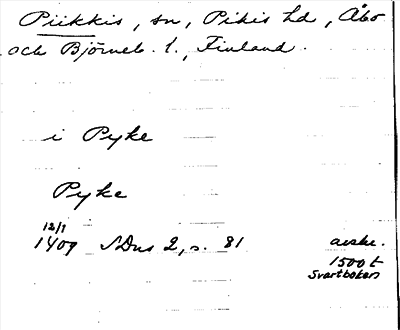 Piikkis, sn, Pikis hd, Åbo
och Björneb. l., Finland.
i Pyke
Pyke
12/1
1409 SDns 2, s. 81 avskr.
1500 t
Svartboken